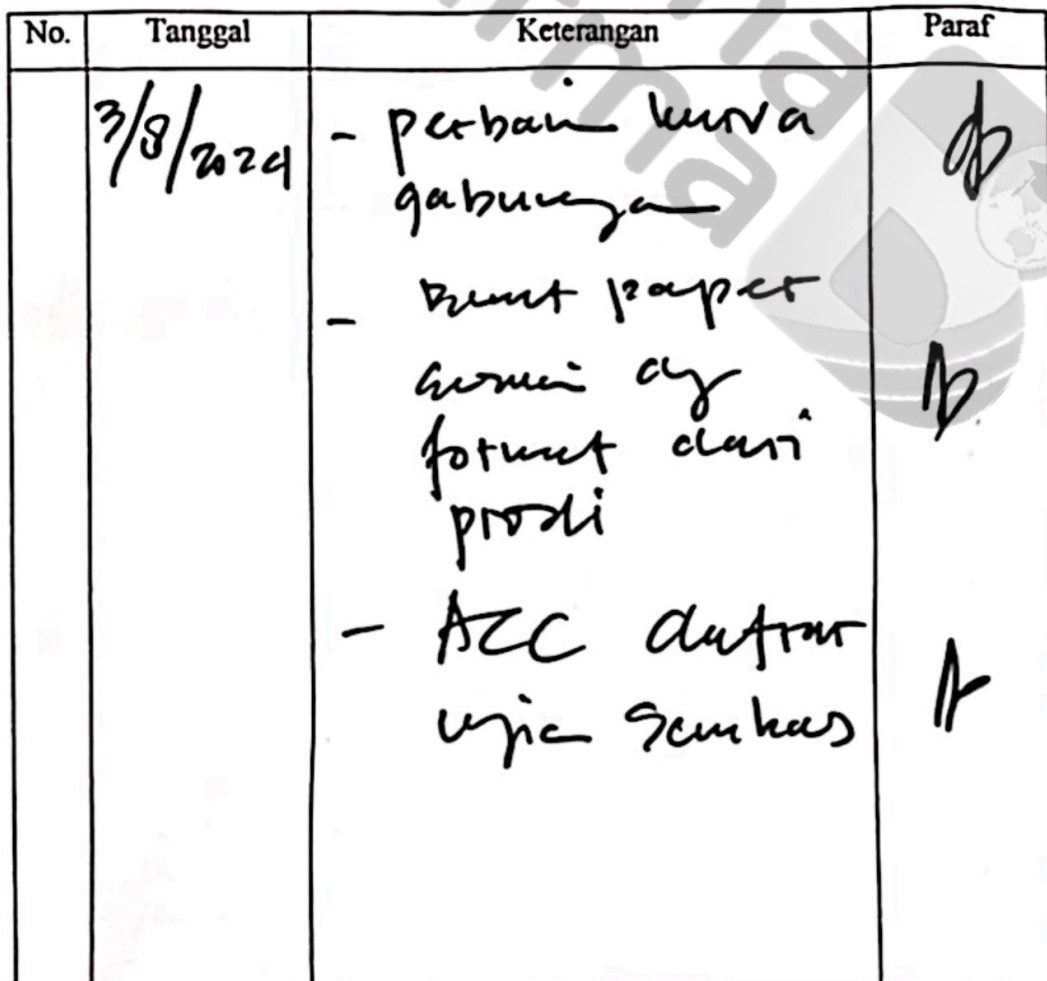 No. Tanggal Keterangan Paraf
3/8/2024 - perbaiki kurva
gabungan
- Buat paper
sesuai dg
format dari
prodi
- ACC daftar
ujian Semhas